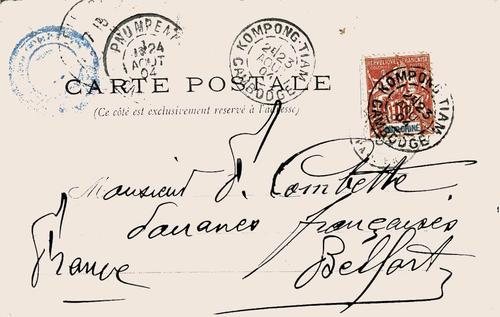 PNUMPENH
24
AOUT
04
KOMPONG-TIAM
23
AOU
04
CAMBODGE
CARTE POSTALE
(Ce côté est exclusivement reservé à l'adresse)
KOMPONG-TIAM
CAMBODGE
Monsieur J. Combette
douanes françaises
Belfort
France